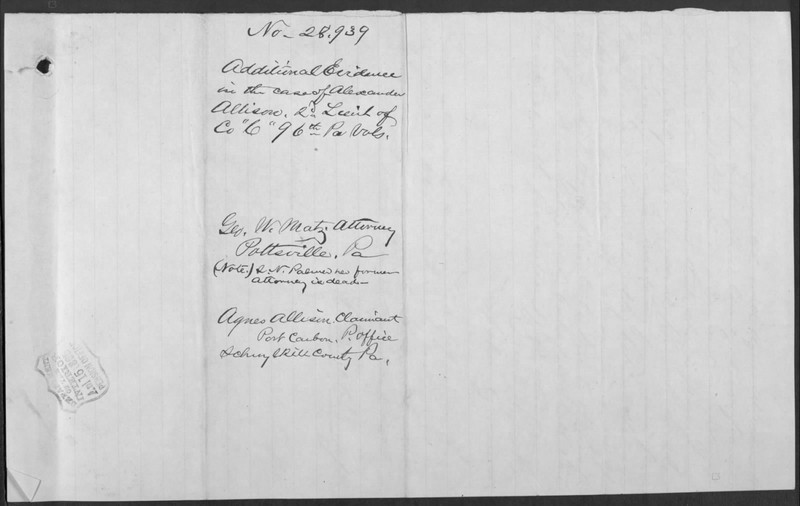 No - 28,939
Additional Evidence
in the case of Alexander
Allison. 2d Lieut of
Co "C" 96th Pa Vols.
Geo. W. Matz. Attorney
Pottsville, Pa
(Note.) S. N. Palmer her former
attorney is dead -
Agnes Allison. Claimant
Port Carbon. P. office
Schuylkill County Pa.